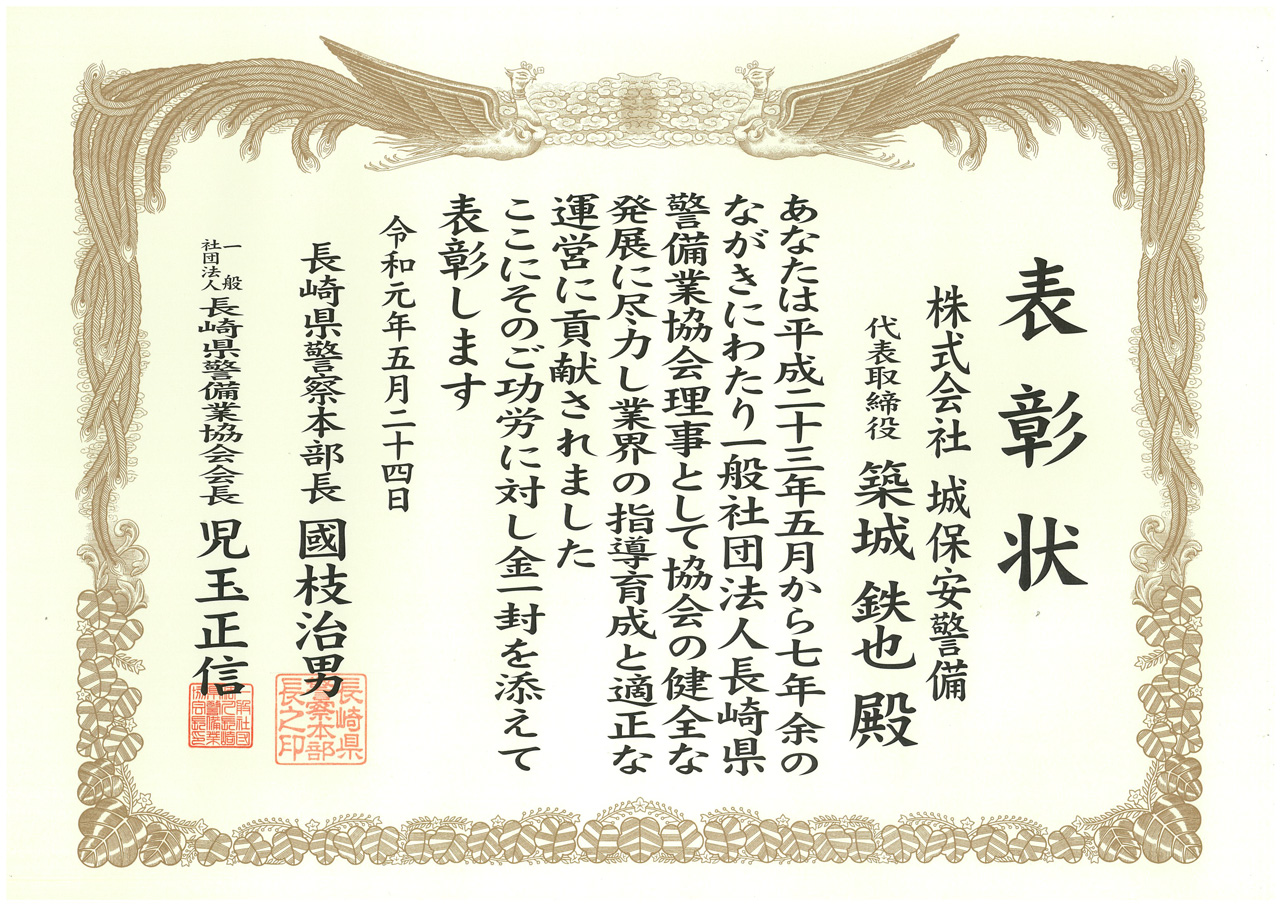 表彰状
株式会社 城保安警備
代表取締役 築城 鉄也 殿
あなたは平成二十三年五月から七年余の
ながきにわたり一般社団法人長崎県
警備業協会理事として協会の健全な
発展に尽力し業界の指導育成と適正な
運営に貢献されました
ここにそのご功労に対し金一封を添えて
表彰します
令和元年五月二十四日
長崎県警察本部長 國枝治男
長崎県
警察本部
長之印
一般社団法人 長崎県警備業協会会長 児玉正信